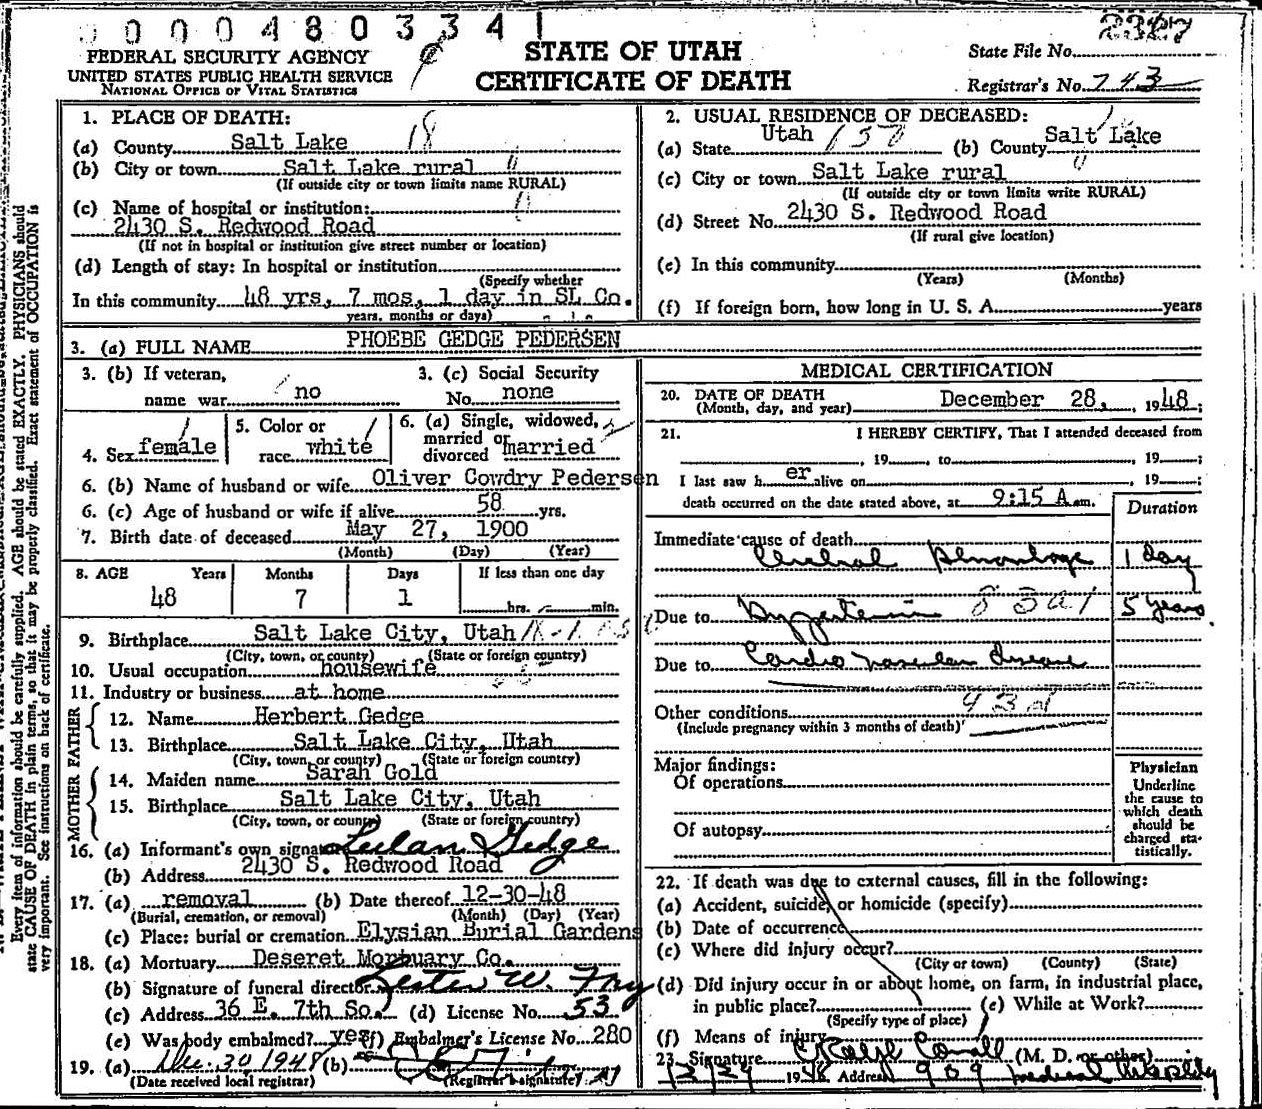 0000480334
FEDERAL SECURITY AGENCY
UNITED STATES PUBLIC HEALTH SERVICE
NATIONAL OFFICE OF VITAL STATISTICS
STATE OF UTAH
CERTIFICATE OF DEATH
State File No. 2327
Registrar's No. 743
1. PLACE OF DEATH:
(a) County Salt Lake 18
(b) City or town Salt Lake rural
(If outside city or town limits name RURAL)
(c) Name of hospital or institution:
2430 S. Redwood Road
(If not in hospital or institution give street number or location)
(d) Length of stay: In hospital or institution
(Specify whether
In this community 48 yrs, 7 mos, 1 day in SL Co.
years, months or days)
2. USUAL RESIDENCE OF DECEASED:
(a) State Utah (b) County Salt Lake
(c) City or town Salt Lake rural
(If outside city or town limits write RURAL)
(d) Street No. 2430 S. Redwood Road
(If rural give location)
(e) In this community
(Years) (Months)
(f) If foreign born, how long in U. S. A. years
3. (a) FULL NAME PHOEBE GEDGE PEDERSEN
3. (b) If veteran,
name war no
3. (c) Social Security
No. none
4. Sex female
5. Color or
race white
6. (a) Single, widowed,
married or
divorced married
6. (b) Name of husband or wife Oliver Cowdry Pedersen
6. (c) Age of husband or wife if alive 58 yrs.
7. Birth date of deceased May 27, 1900
(Month) (Day) (Year)
8. AGE Years Months Days If less than one day
48 7 1 hrs. min.
9. Birthplace Salt Lake City, Utah
(City, town, or county) (State or foreign country)
10. Usual occupation housewife
11. Industry or business at home
FATHER
12. Name Herbert Gedge
13. Birthplace Salt Lake City, Utah
(City, town, or county) (State or foreign country)
MOTHER
14. Maiden name Sarah Gold
15. Birthplace Salt Lake City, Utah
(City, town, or county) (State or foreign country)
16. (a) Informant's own signature Lulan Gedge
(b) Address 2430 S. Redwood Road
17. (a) removal (b) Date thereof 12-30-48
(Burial, cremation, or removal) (Month) (Day) (Year)
(c) Place: burial or cremation Elysian Burial Gardens
18. (a) Mortuary Deseret Mortuary Co.
(b) Signature of funeral director Lester W. Fry
(c) Address 36 E. 7th So. (d) License No. 53
(e) Was body embalmed? yes (f) Embalmer's License No. 280
19. (a) Dec. 30 1948 (b)
(Date received local registrar) (Registrar's signature)
MEDICAL CERTIFICATION
20. DATE OF DEATH
(Month, day, and year) December 28, 1948;
21. I HEREBY CERTIFY, That I attended deceased from
, 19 , to , 19 ;
I last saw her alive on , 19 ;
death occurred on the date stated above, at 9:15 A m.
Duration
Immediate cause of death
Cerebral Hemorrhage 1 day
Due to Hypertension 83a1 5 years
Due to Cardio vascular disease
Other conditions
(Include pregnancy within 3 months of death)
Major findings:
Of operations
Of autopsy
Physician
Underline
the cause to
which death
should be
charged sta-
tistically.
22. If death was due to external causes, fill in the following:
(a) Accident, suicide, or homicide (specify)
(b) Date of occurrence
(c) Where did injury occur?
(City or town) (County) (State)
(d) Did injury occur in or about home, on farm, in industrial place,
in public place? (e) While at Work?
(Specify type of place)
(f) Means of injury
23. Signature (M. D. or other)
12/29 1948 Address 909 medical
Every item of information should be carefully supplied. AGE should be stated EXACTLY. PHYSICIANS should
state CAUSE OF DEATH in plain terms, so that it may be properly classified. Exact statement of OCCUPATION is
very important. See instructions on back of certificate.